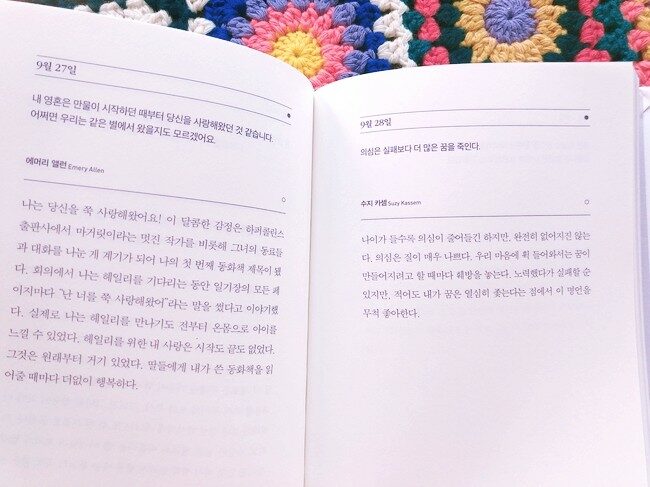 9월 27일
내 영혼은 만물이 시작하던 때부터 당신을 사랑해왔던 것 같습니다.
어쩌면 우리는 같은 별에서 왔을지도 모르겠어요.
에머리 앨런 Emery Allen
나는 당신을 쭉 사랑해왔어요! 이 달콤한 감정은 하퍼콜린스
출판사에서 마거릿이라는 멋진 작가를 비롯해 그녀의 동료들
과 대화를 나눈 게 계기가 되어 나의 첫 번째 동화책 제목이 됐
다. 회의에서 나는 헤일리를 기다리는 동안 일기장의 모든 페
이지마다 “난 너를 쭉 사랑해왔어”라는 말을 썼다고 이야기했
다. 실제로 나는 헤일리를 만나기도 전부터 온몸으로 아이를
느낄 수 있었다. 헤일리를 위한 내 사랑은 시작도 끝도 없었다.
그것은 원래부터 거기 있었다. 딸들에게 내가 쓴 동화책을 읽
어줄 때마다 더없이 행복하다.
9월 28일
의심은 실패보다 더 많은 꿈을 죽인다.
수지 카셈 Suzy Kassem
나이가 들수록 의심이 줄어들긴 하지만, 완전히 없어지진 않는
다. 의심은 질이 매우 나쁘다. 우리 마음에 휙 들어와서는 꿈이
만들어지려고 할 때마다 훼방을 놓는다. 노력했다가 실패할 순
있지만, 적어도 내가 꿈은 열심히 좇는다는 점에서 이 명언을
무척 좋아한다.